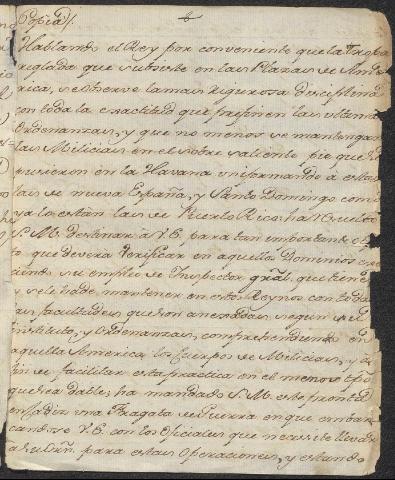 Copiad/.
Hallando el Rey por conveniente que la Tropa
reglada que subsiste en las Plazas de Amé
rica, se observe la mas rigurosa disciplina
con toda la exactitud que prefinen las ultimas
Ordenanzas, y que no menos se mantengan
las Milicias en el sobresaliente pie que se
pusieron en la Havana uniformando á estas
las de nueva España, y Santo Domingo como
ya lo están las de Puerto Rico: ha resuelto
S. M. destinar á V. E. para tan importante obje
to que deverá verificar en aquellos Dominios
su empleo de Inspector gral. que tiene
y se le ha de mantener en estos Reynos con to
las facultades que son anexas, segun su
instituto, y Ordenanzas, comprehendiendo en
aquella America los Cuerpos de Milicias, y á
fin de facilitar esta practica en el menos tpo.
que sea dable; ha mandado S. M. este pronta
en Cadiz una Fragata de Guerra en que embar
candose V. E. con los Oficiales que necesite llevar
á su Orn. para estas Operaciones, y estando